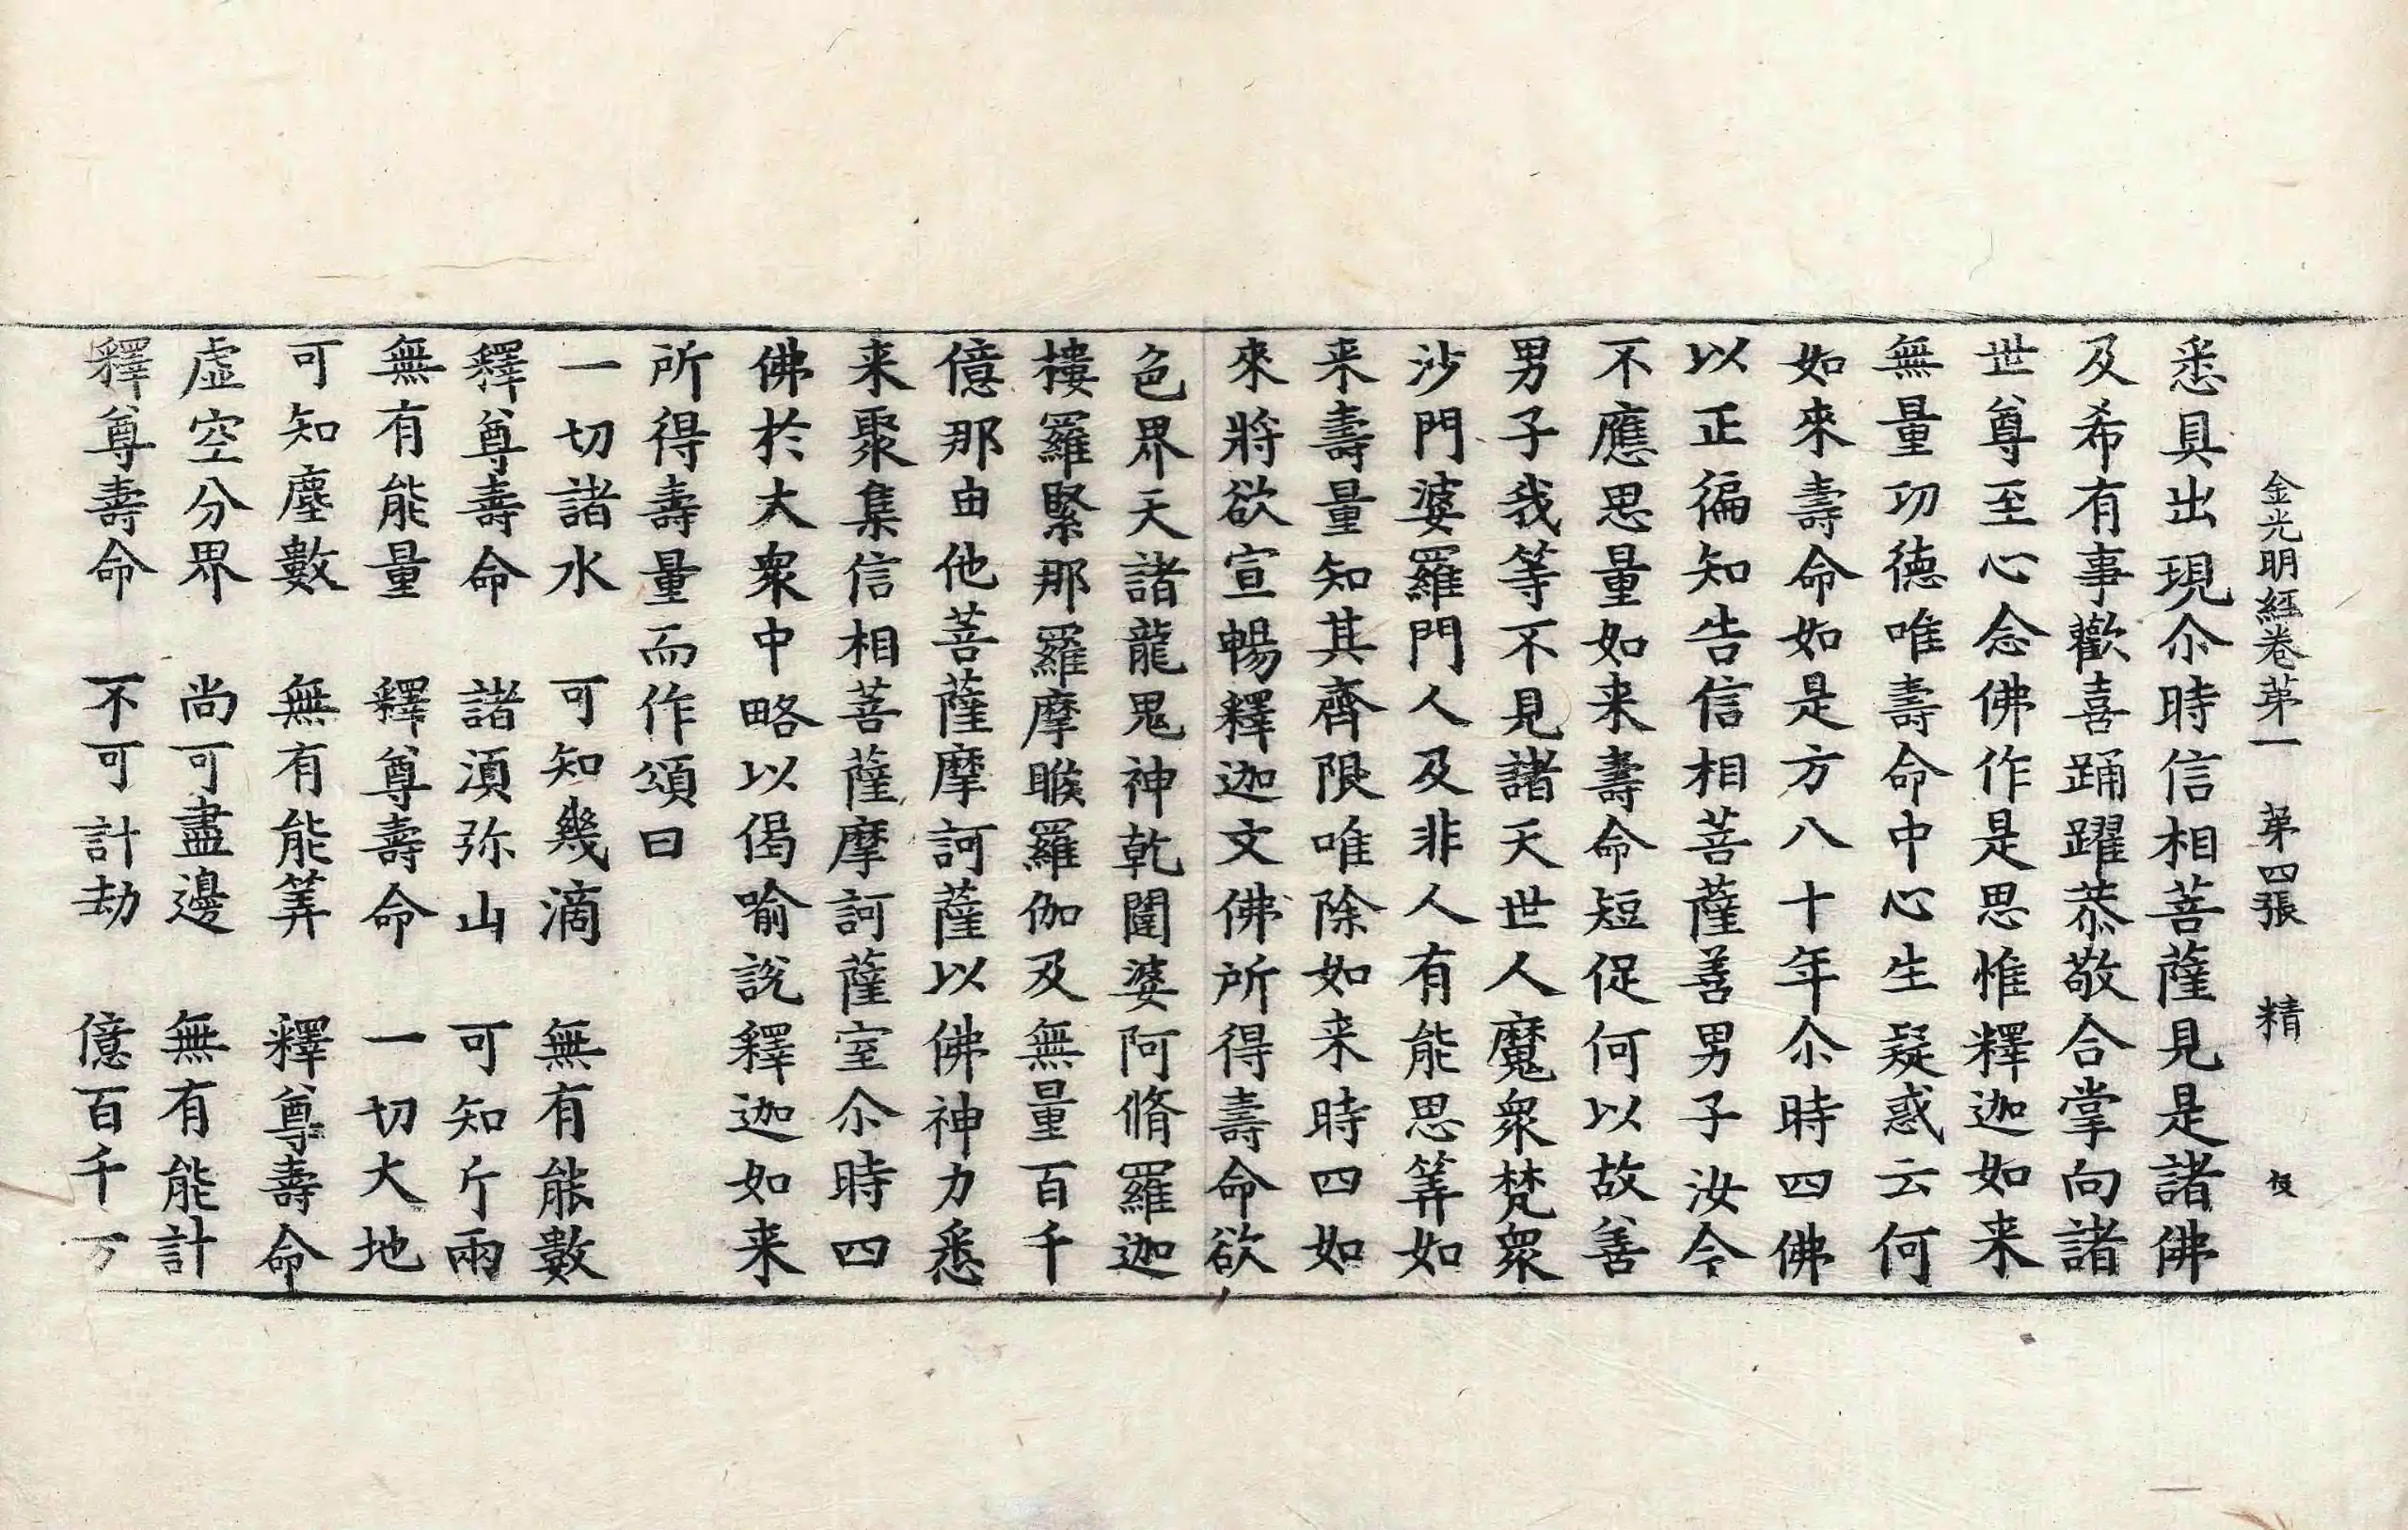 金光明經卷苐一　苐四張　精
悉具出現尒時信相菩薩見是諸佛
及希有事歡喜踊躍恭敬合掌向諸
世尊至心念佛作是思惟釋迦如来
無量功德唯壽命中心生疑惑云何
如來壽命如是方八十年尒時四佛
以正徧知告信相菩薩善男子汝今
不應思量如来壽命短促何以故善
男子我等不見諸天世人魔衆梵衆
沙門婆羅門人及非人有能思筭如
来壽量知其齊限唯除如来時四如
來將欲宣暢釋迦文佛所得壽命欲
色界天諸龍鬼神乾闥婆阿脩羅迦
樓羅緊那羅摩睺羅伽及無量百千
億那由他菩薩摩訶薩以佛神力悉
来聚集信相菩薩摩訶薩室尒時四
佛於大衆中略以偈喻說釋迦如来
所得壽量而作頌曰
一切諸水　可知幾滴　無有能數
釋尊壽命　諸湏弥山　可知斤兩
無有能量　釋尊壽命　一切大地
可知塵數　無有能筭　釋尊壽命
虛空分界　尚可盡邊　無有能計
釋尊壽命　不可計劫　億百千万